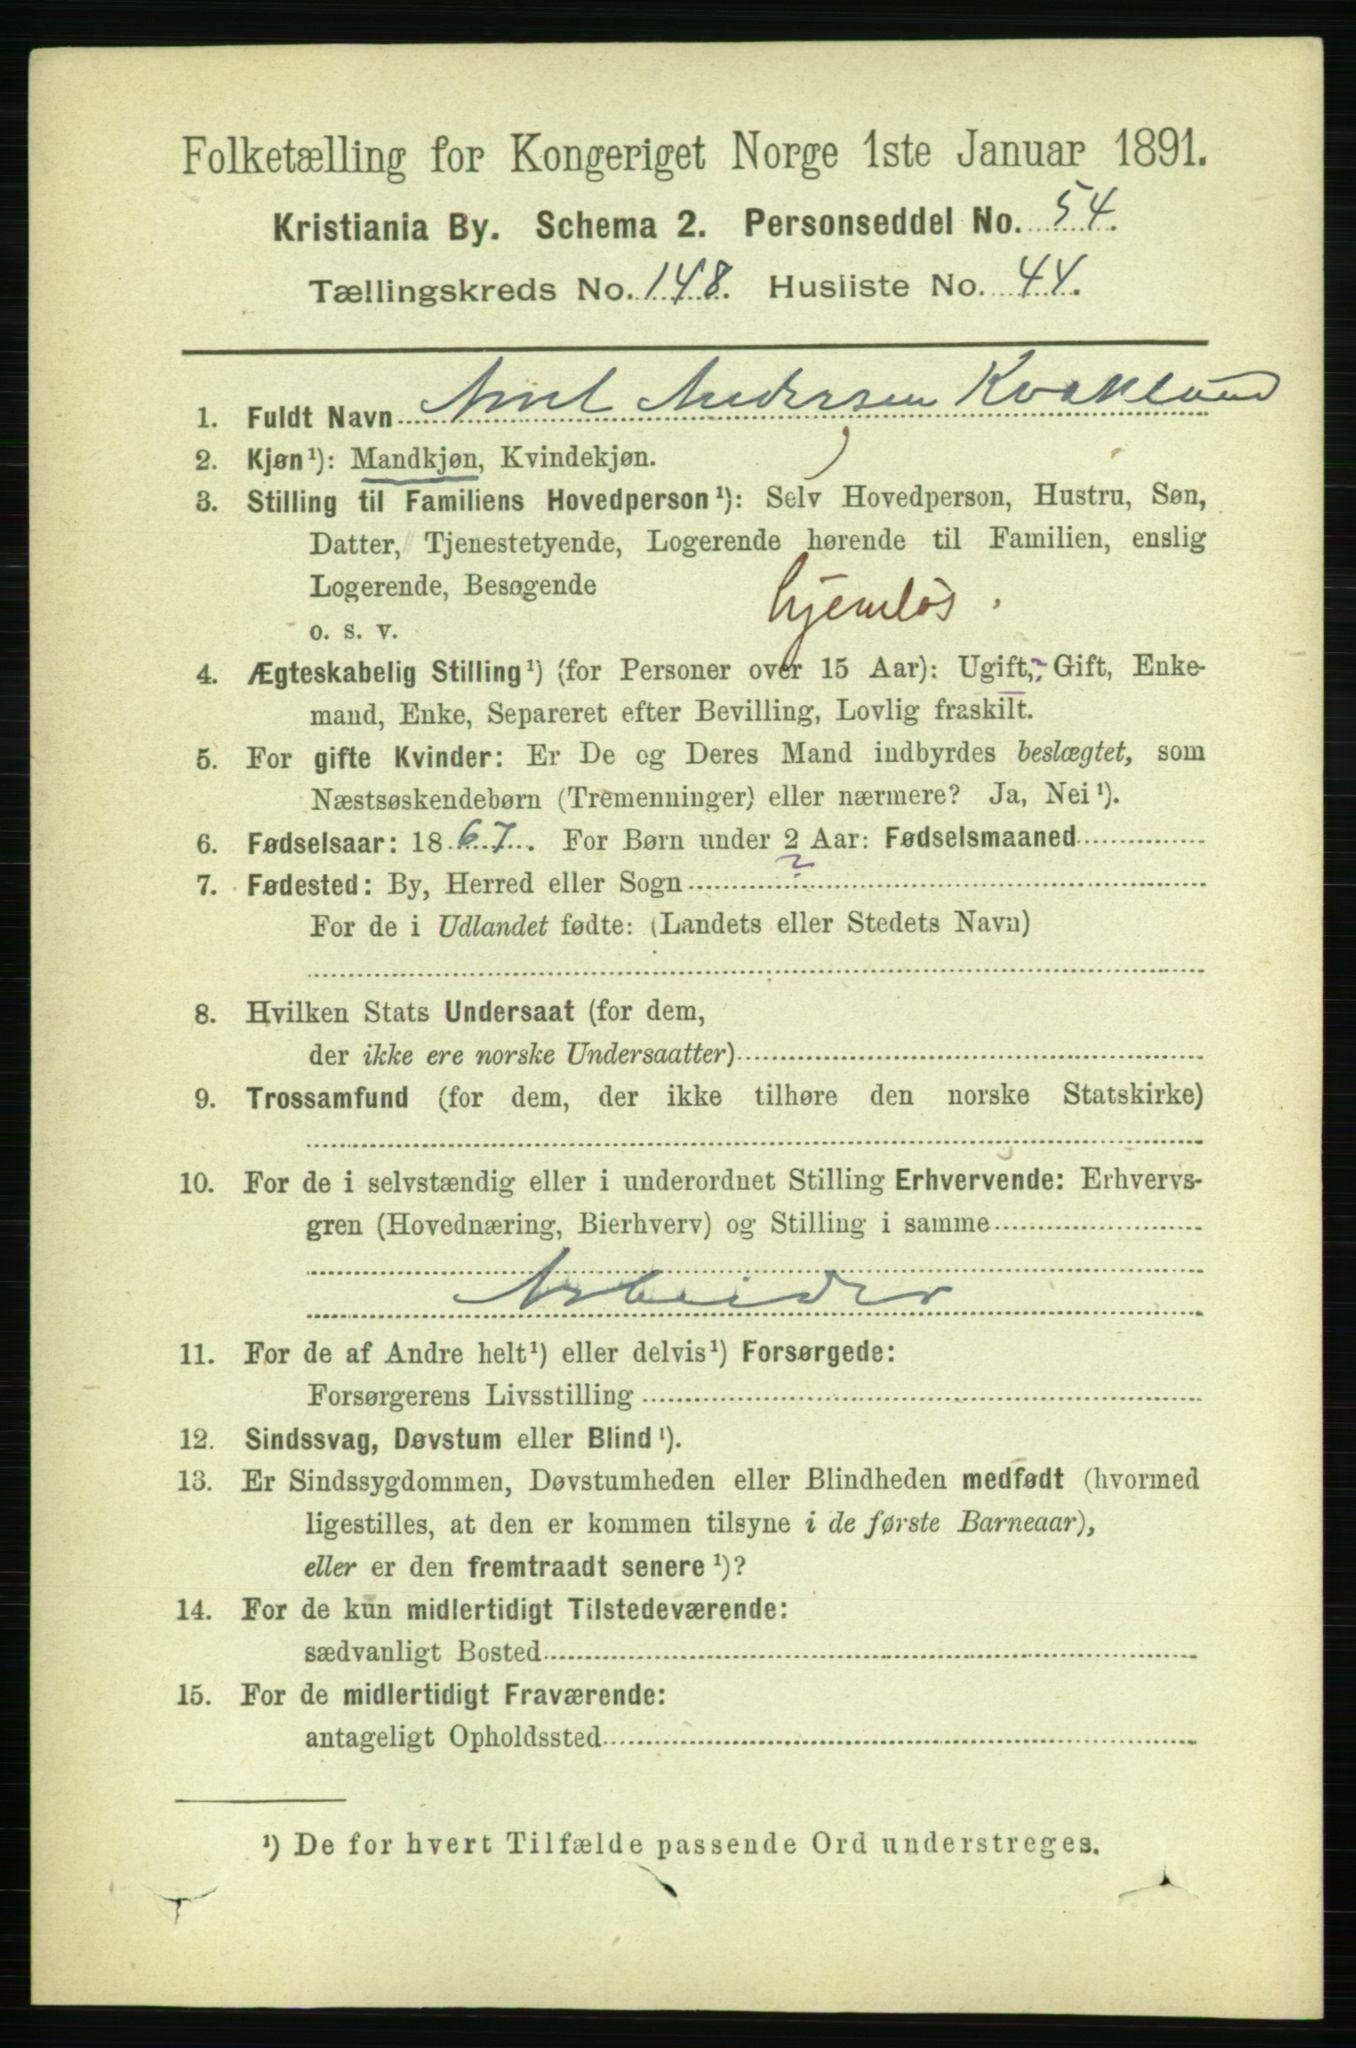 Folketælling for Kongeriget Norge 1ste Januar 1891.
Kristiania By. Schema 2. Personseddel No. 54.
Tællingskreds No. 148. Husliste No. 44.
1. Fuldt Navn Andersen
2. Kjøn¹): Mandkjøn, Kvindekjøn.
3. Stilling til Familiens Hovedperson¹): Selv Hovedperson, Hustru, Søn,
Datter, Tjenestetyende, Logerende hørende til Familien, enslig
Logerende, Besøgende
hjemløs.
o. s. v.
4. Ægteskabelig Stilling¹) (for Personer over 15 Aar): Ugift,? Gift, Enke-
mand, Enke, Separeret efter Bevilling, Lovlig fraskilt.
5. For gifte Kvinder: Er De og Deres Mand indbyrdes beslægtet, som
Næstsøskendebørn (Tremenninger) eller nærmere? Ja, Nei¹).
6. Fødselsaar: 1867. For Børn under 2 Aar: Fødselsmaaned
7. Fødested: By, Herred eller Sogn ?
For de i Udlandet fødte: (Landets eller Stedets Navn)
8. Hvilken Stats Undersaat (for dem,
der ikke ere norske Undersaatter)
9. Trossamfund (for dem, der ikke tilhøre den norske Statskirke)
10. For de i selvstændig eller i underordnet Stilling Erhvervende: Erhvervs-
gren (Hovednæring, Bierhverv) og Stilling i samme
Arbeider
11. For de af Andre helt¹) eller delvis¹) Forsørgede:
Forsørgerens Livsstilling
12. Sindssvag, Døvstum eller Blind¹).
13. Er Sindssygdommen, Døvstumheden eller Blindheden medfødt (hvormed
ligestilles, at den er kommen tilsyne i de første Barneaar),
eller er den fremtraadt senere¹)?
14. For de kun midlertidigt Tilstedeværende:
sædvanligt Bosted
15. For de midlertidigt Fraværende:
antageligt Opholdssted
¹) De for hvert Tilfælde passende Ord understreges.